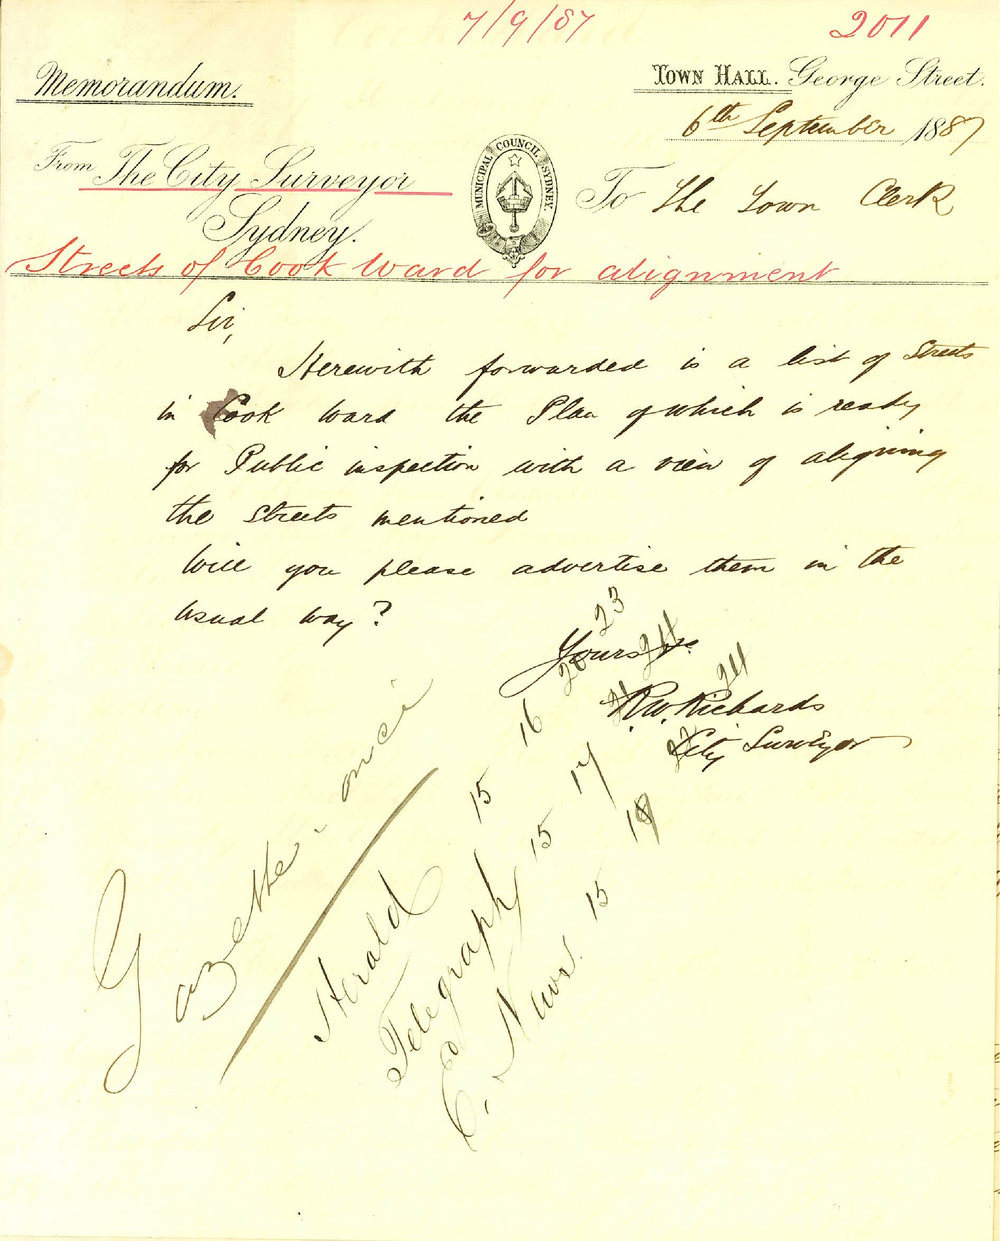 7/9/87 2011
Memorandum.
Town Hall. George Street.
6th September 1887
From The City Surveyor
Sydney.
MUNICIPAL COUNCIL SYDNEY.
To The Town Clerk
Streets of Cook Ward for alignment
Sir,
Herewith forwarded is a list of Streets
in Cook Ward the Plan of which is ready
for Public inspection with a view of aligning
the Streets mentioned
Will you please advertise them in the
usual way?
Yours &c
R.W. Richards
City Surveyor
Gazette once
Herald 15 16 20 23
Telegraph 15 17 21 24
E. News. 15 18 22 24